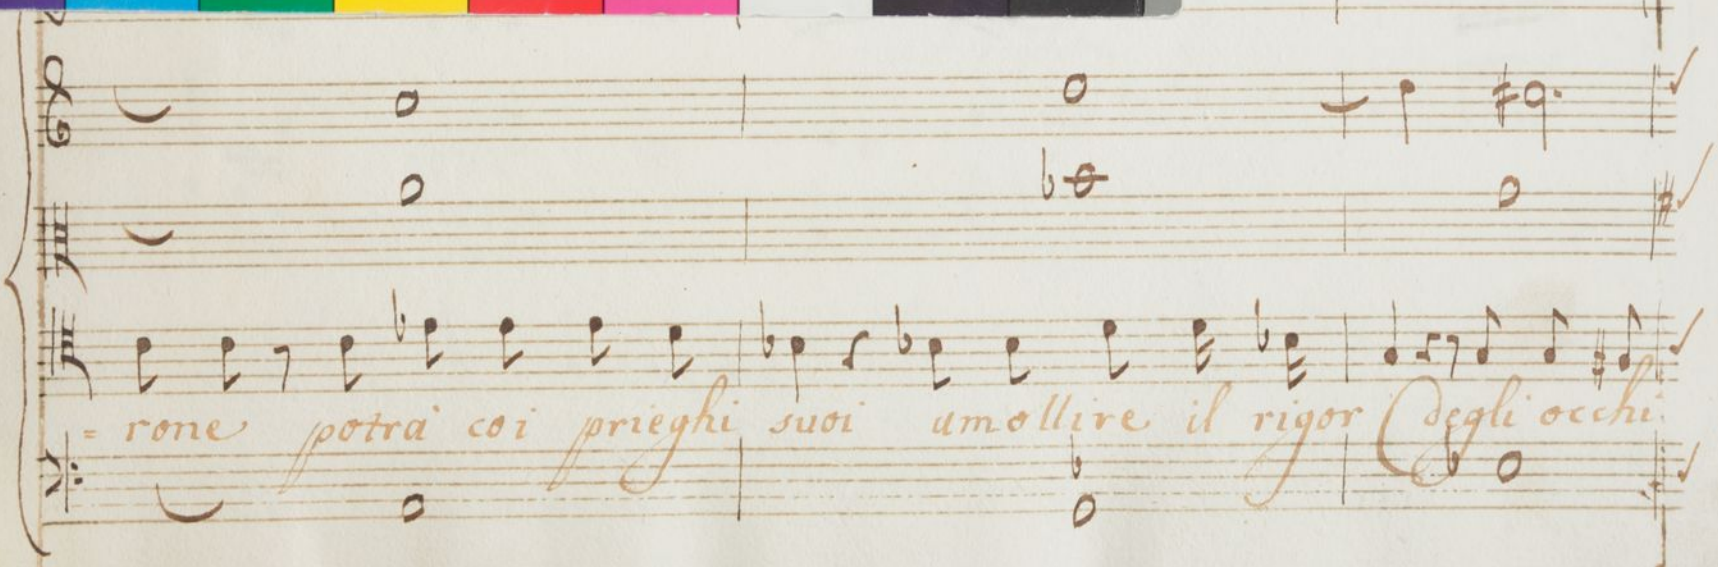 = rone potrà coi prieghi suoi amollire il rigor degli occhi